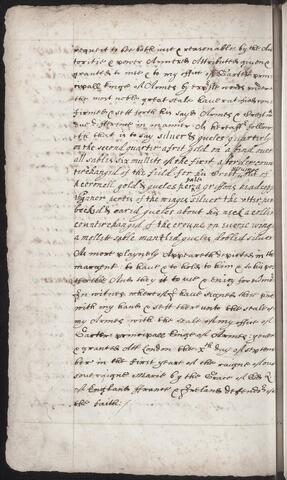 request to be both just & reasonable by the Au
toritie & power annexed attributed given &
granted to me & to my office of Garter prin
cipall kinge of Armes by expresse words under
the most noble great seale have
firme & sett forth his sayd Armes & Creast in
due forme in manner As hereafter follow
eth that is to say silver & gueles quarterly
on the second quarter a rose gold on a bend over
all sables six mullets of the first a border counter
changed of the field for his Creast
a cornell gold & gueles per pale a griffons head
winges silver the utter
becked & eared gueles about his neck a coller
counterchanged of the crowne on everie wing
a mollet sable mantled gueles dobled silver
As more playnely appeareth depicted in this
margent to have & to hold to him & to his pos
teritie And they it to use & enjoy for evermore
In witnes whereof I have signed these pñts
with my hand & sett thereunto the seale of
my Armes with the seale of my office of
Garter principall kinge of Armes geven
& granted att London the xth day of Septem
ber in the first yeare of the raigne of our
soveraigne Marie by the Grace of God Q
of England France & Ireland defendor of
the faith